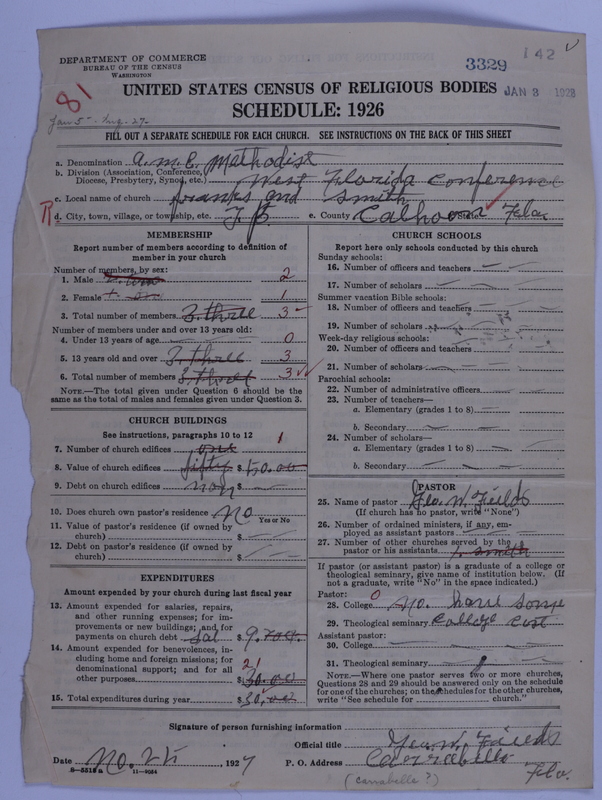 DEPARTMENT OF COMMERCE
BUREAU OF THE CENSUS
WASHINGTON
3329
142
81
UNITED STATES CENSUS OF RELIGIOUS BODIES
JAN 3 1928
SCHEDULE: 1926
FILL OUT A SEPARATE SCHEDULE FOR EACH CHURCH. SEE INSTRUCTIONS ON THE BACK OF THIS SHEET
a. Denomination A.M.E. Mathodist
b. Division (Association, Conference, Diocese, Presbytery, Synod, etc.) West Florida Conference
c. Local name of church franks and Smith
R d. City, town, village, or township, etc. e. County Calhoun Fla
MEMBERSHIP
Report number of members according to definition of
member in your church
Number of members, by sex:
1. Male 2
2. Female 1
3. Total number of members 3. three 3
Number of members under and over 13 years old:
4. Under 13 years of age 0
5. 13 years old and over 3. three 3
6. Total number of members 3 three 3
NOTE.—The total given under Question 6 should be the
same as the total of males and females given under Question 3.
CHURCH BUILDINGS
See instructions, paragraphs 10 to 12
7. Number of church edifices one 1
8. Value of church edifices fifty $ 50.00
9. Debt on church edifices non $
10. Does church own pastor's residence? no
Yes or No
11. Value of pastor's residence (if owned by
church) $
12. Debt on pastor's residence (if owned by
church) $
EXPENDITURES
Amount expended by your church during last fiscal year
13. Amount expended for salaries, repairs,
and other running expenses; for im-
provements or new buildings; and for
payments on church debt sal $ 9.
14. Amount expended for benevolences, in-
cluding home and foreign missions; for
denominational support; and for all
other purposes 21 $ 30.00
15. Total expenditures during year $ 30.00
CHURCH SCHOOLS
Report here only schools conducted by this church
Sunday schools:
16. Number of officers and teachers
17. Number of scholars
Summer vacation Bible schools:
18. Number of officers and teachers
19. Number of scholars
Week-day religious schools:
20. Number of officers and teachers
21. Number of scholars
Parochial schools:
22. Number of administrative officers
23. Number of teachers—
a. Elementary (grades 1 to 8)
b. Secondary
24. Number of scholars—
a. Elementary (grades 1 to 8)
b. Secondary
PASTOR
25. Name of pastor Geo. W. Fields
(If church has no pastor, write "None")
26. Number of ordained ministers, if any, em-
ployed as assistant pastors
27. Number of other churches served by the
pastor or his assistants 1. Smith
If pastor (or assistant pastor) is a graduate of a college or
theological seminary, give name of institution below. (If
not a graduate, write "No" in the space indicated.)
Pastor:
28. College 0 no. have some
29. Theological seminary College
Assistant pastor:
30. College
31. Theological seminary
NOTE.—Where one pastor serves two or more churches,
Questions 28 and 29 should be answered only on the schedule
for one of the churches; on the schedules for the other churches,
write "See schedule for church."
Signature of person furnishing information
Official title Geo. W. Fields
Date No. 25 1927 P. O. Address Carrabelle Fla.
8—5518 a 11—9084
(Carrabelle?)